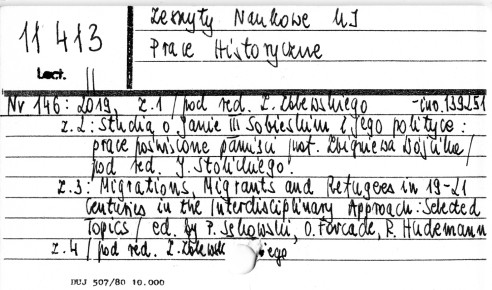 Zeszyty Naukowe UJ
11 413
Prace Historyczne
Lect. II
Nr 146: 2019, z.1 / pod red. Z. Zblewskiego -inw. 139251
z.2: Studia o Janie III Sobieskim i jego polityce:
prace poświęcone pamięci prof. Zbigniewa Wójcika /
pod red. J. Stolickiego.
z.3: Migrations, Migrants and Refugees in 19-21
Centuries in the Interdisciplinary Approach: Selected
Topics / ed. by P. Sękowski, O. Forcade, R. Hudemann
z.4 / pod red. Z. Zblewskiego
BUJ 507/80 10.000